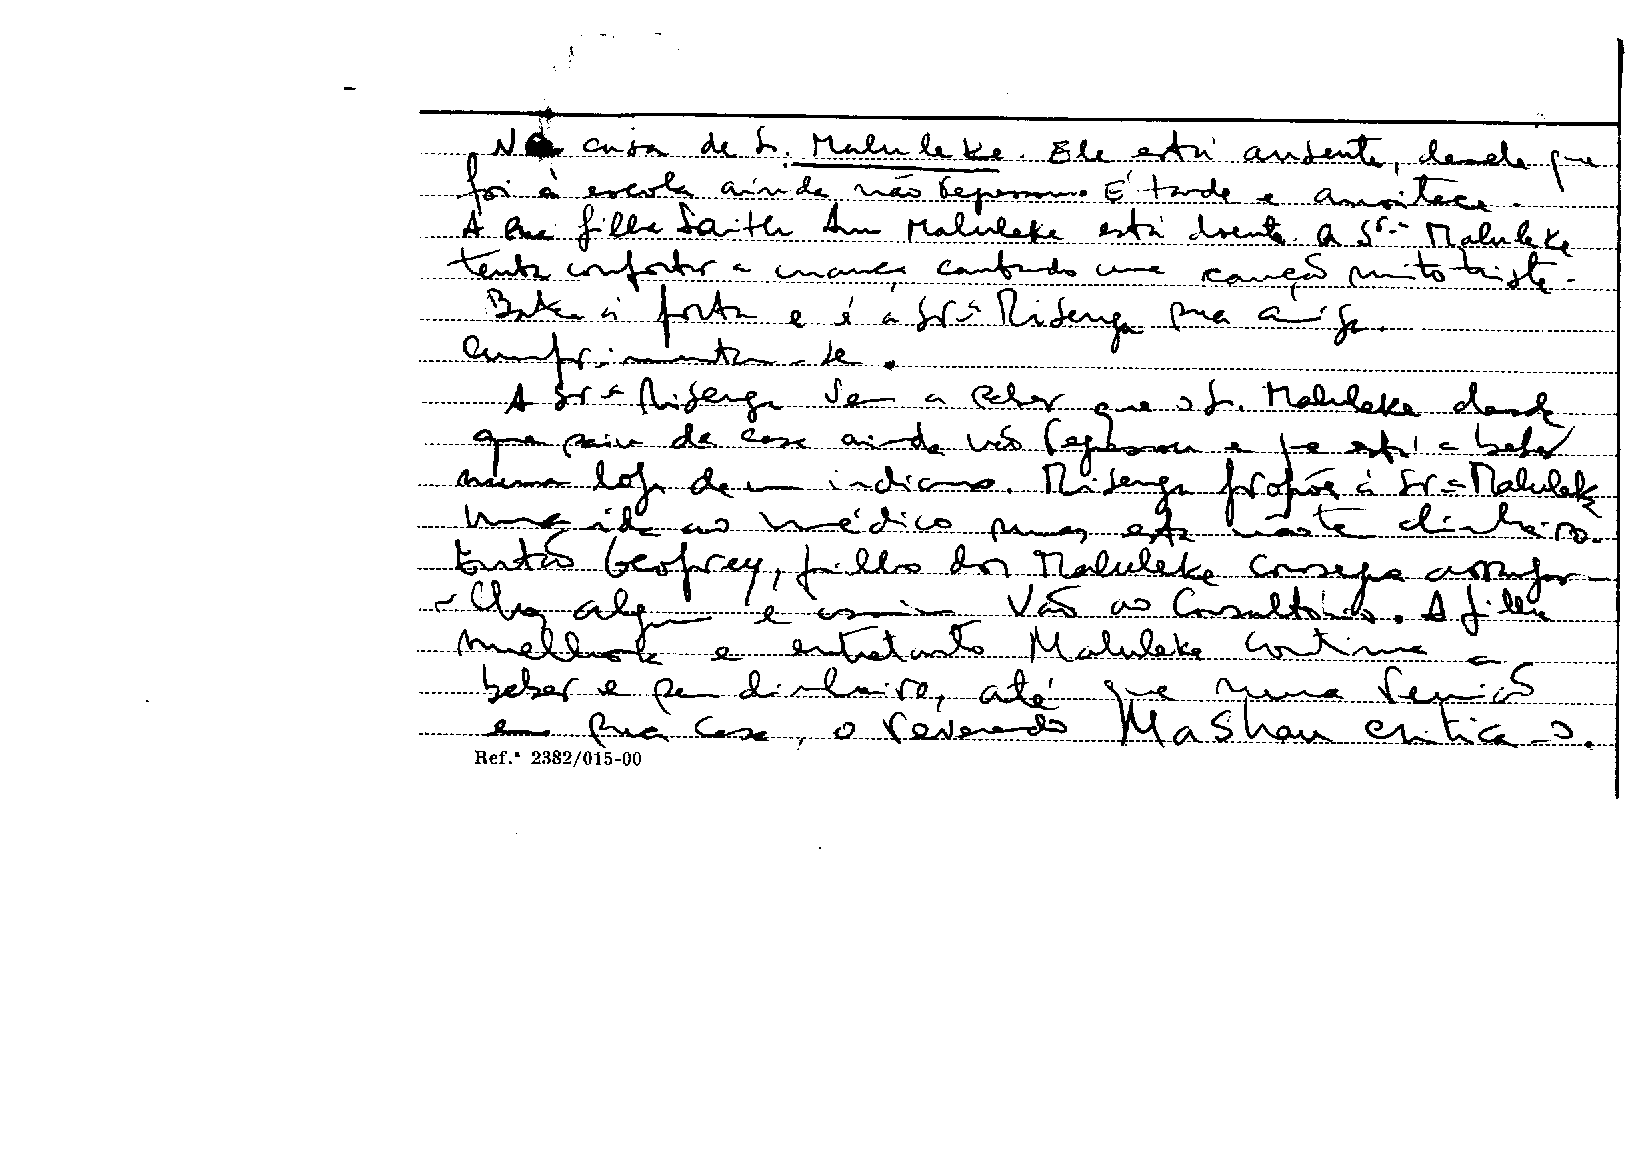 Na casa de Sr. Maluleke. Ele está ausente, desde que
foi à escola ainda não regressou. É tarde e anoitece.
A sua filha Saith Ann Maluleke está doente. A Sr.ª Maluleke
tenta confortar a criança cantando uma canção muito triste.
Batem à porta e é a Sr.ª Risenga sua amiga.
Cumprimentam-se.
A Sr.ª Risenga vem a saber que o Sr. Maluleke desde
que saiu de casa ainda não regressou e que está a beber
numa loja de um indiano. Risenga propõe à Sr.ª Maluleke
uma ida ao médico mas esta não tem dinheiro.
Então Geofrey, filho dos Maluleke consegue arranjar-
-lhes algum e assim vão ao Consultório. A filha
melhora e entretanto Maluleke continua a
beber e sem dinheiro, até que numa reunião
em sua casa, o reverendo MaShau critica-o.
Ref.ª 2382/015-00